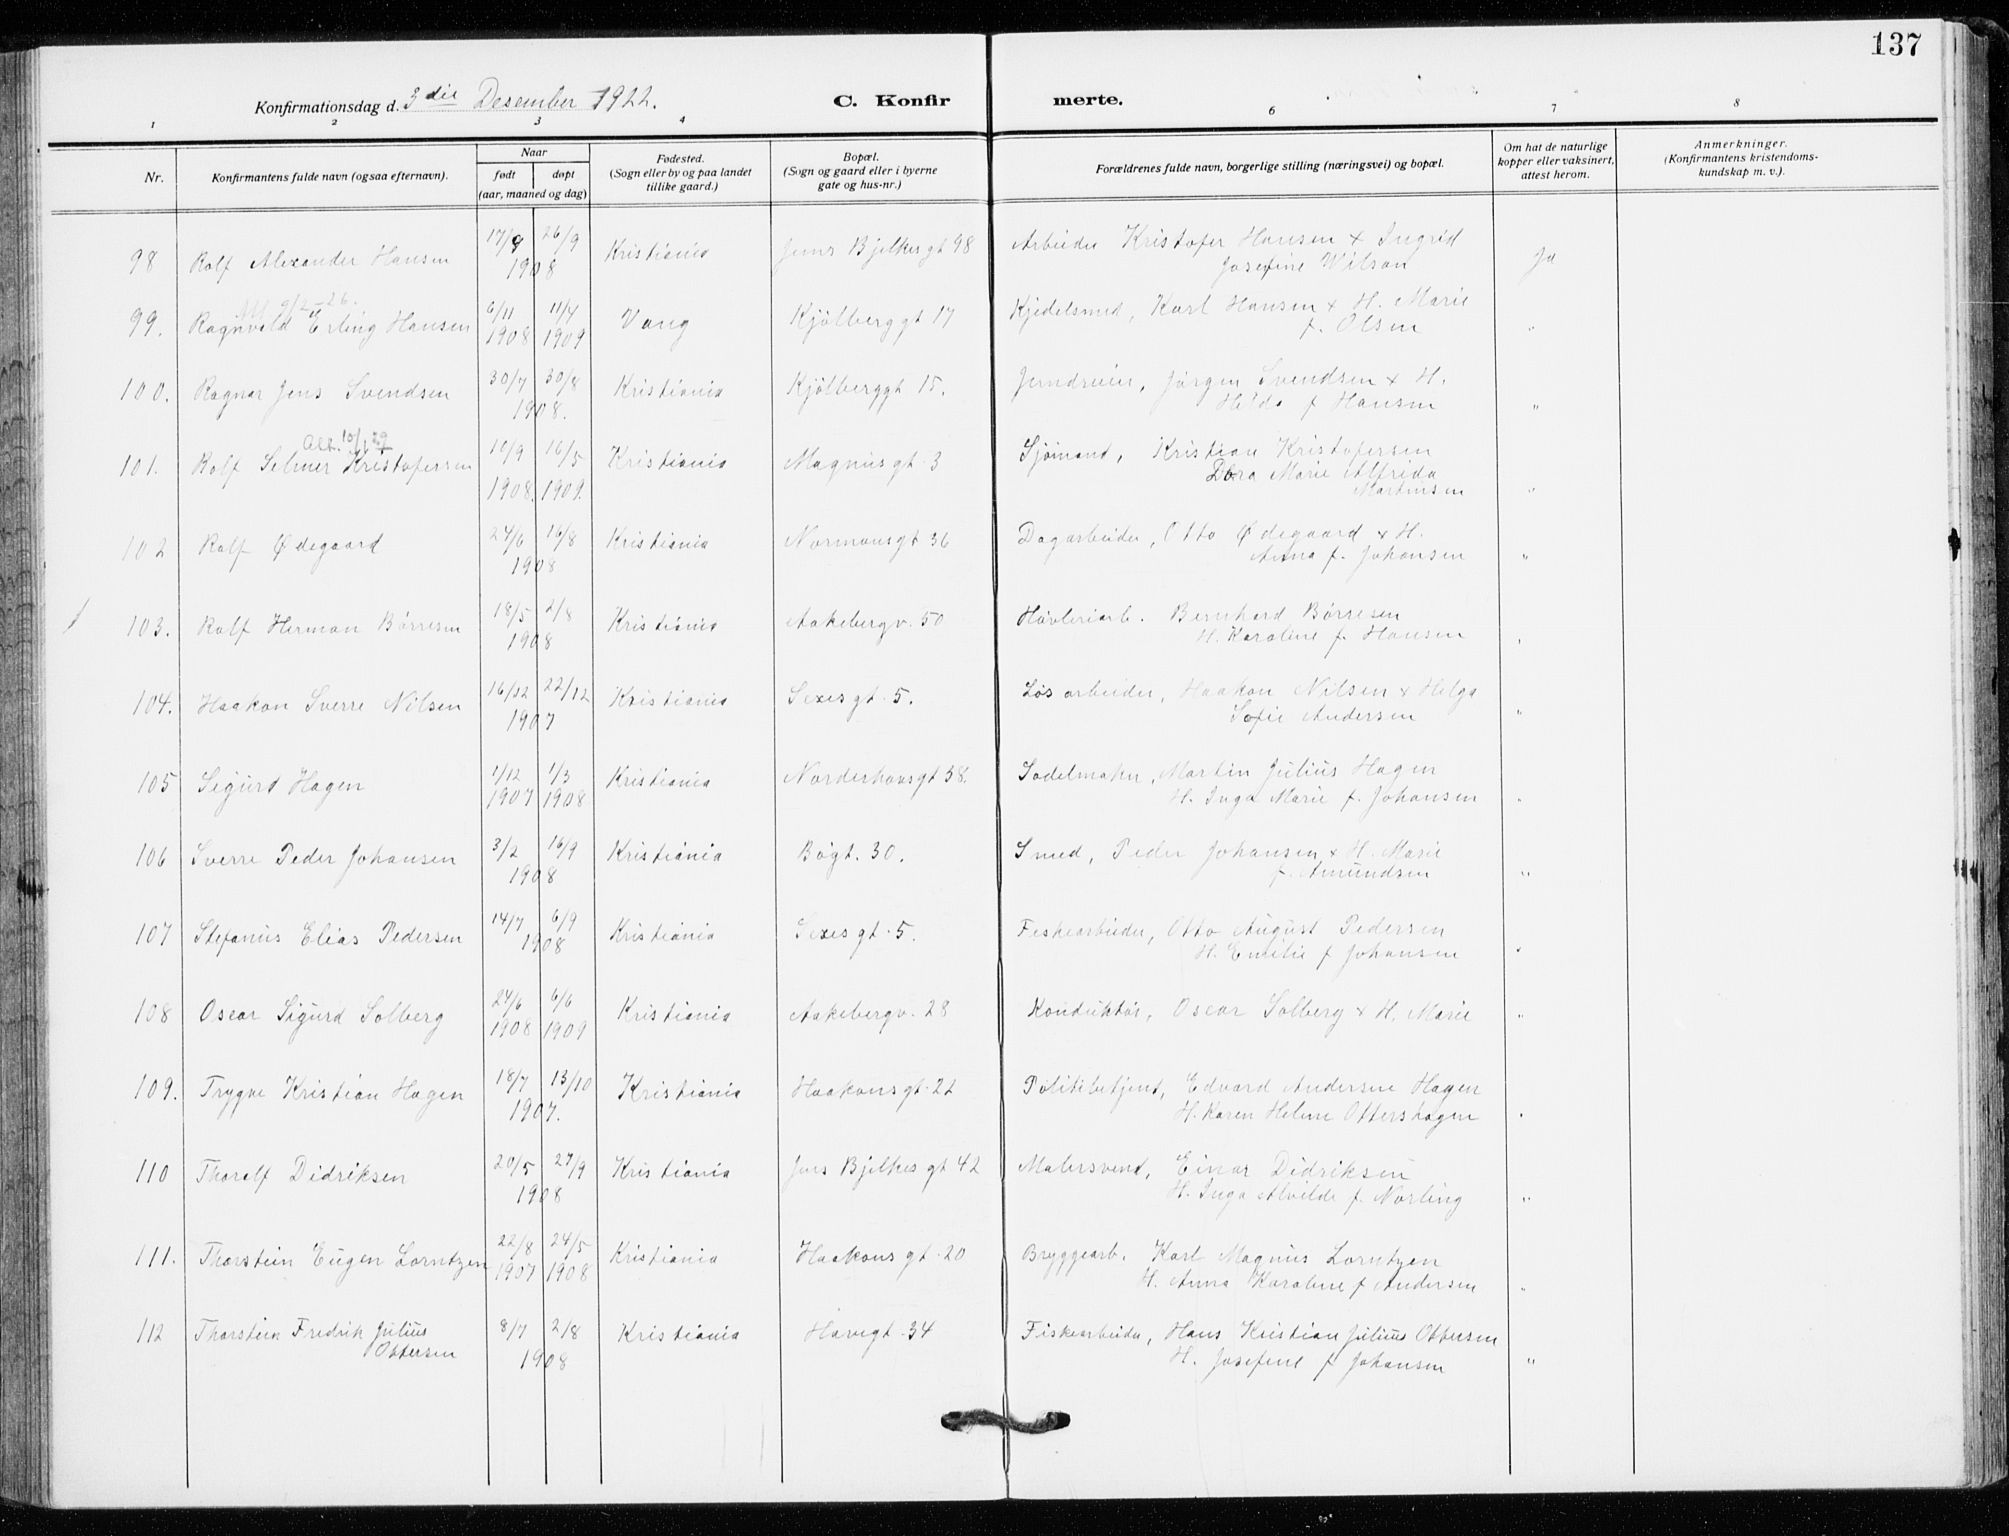 137
Konfirmationsdag d. 3die Desember 1922. C. Konfir merte.
1 2 3 4 6 7 8
Nr. Konfirmantens fulde navn (ogsaa efternavn). Naar født døpt (aar, maaned og dag) Fødested. (Sogn eller by og paa landet tillike gaard.) Bopæl. (Sogn og gaard eller i byerne gate og hus-nr.) Forældrenes fulde navn, borgerlige stilling (næringsvei) og bopæl. Om hat de naturlige kopper eller vaksinert, attest herom. Anmerkninger. (Konfirmantens kristendoms-kundskap m. v.).
98 Rolf Alexander Hansen 17/8 26/9 1908 Kristiania Jens Bjelkesgt 98 Arbeider Kristofer Hansen + Ingrid
Josefine Wilson Ja
9/2-26.
99. Ragnvald Erling Hansen 6/11 1908 11/4 1909 Vang Kjölberggt 17 Kjedelsmed, Karl Hansen + H. Marie
f. Olsen "
100. Ragnar Jens Svendsen 30/7 30/8 1908. Kristiania Kjölberggt 15. Jerndreier, Jörgen Svendsen + H.
Hilda f Hansen "
Att. 10/1 29
101. Rolf Selmer Kristofersen 10/9 1908. 16/5 1909. Kristiania Magnus gt. 3 Sjömand, Kristian Kristofersen
Dora Marie Alfrida
Martinsen "
102 Rolf Ødegaard 24/6 16/8 1908 Kristiania Normansgt 36 Dagarbeider, Otto Ødegaard + H.
Anna f. Johansen "
103. Rolf Herman Börresen 18/5 2/8 1908 Kristiania Aakebergv. 50 Høvleriarb. Bernhard Börresen
H. Karoline f. Hansen "
104. Haakon Sverre Nilsen 16/12 22/12 1907 Kristiania Sexes gt. 5. Løsarbeider, Haakon Nilsen + Helga
Sofie Andersen "
105 Sigurd Hagen 1/12 1907 1/3 1908 Kristiania Norderhovsgt 38. Sadelmaker, Martin Julius Hagen
H. Inga Marie f. Johansen "
106 Sverre Peder Johansen 3/2 16/9 1908 Kristiania Bögt. 30. Smed, Peder Johansen + H. Marie
f. Amundsen "
107 Stefanus Elias Pedersen 14/7 6/9 1908 Kristiania Sexes gt. 5. Feskearbeider, Otto August Pedersen
H. Emilie f Johansen "
108 Oscar Sigurd Solberg 24/6 1908 6/6 1909 Kristiania Aakebergv. 28 Konduktör, Oscar Solberg + H. Marie "
109. Trygve Kristian Hagen 18/7 13/10 1907. Kristiania Haakonsgt. 22 Politibetjent, Edvard Andersen Hagen
H. Karen Helene Ottershagen "
110 Thoralf Didriksen 20/5 27/9 1908 Kristiania Jens Bjelkes gt 42 Malersvend, Einar Didriksen
H. Inga Alvilde f. Norling "
111. Thorstein Eugen Lorntzen 22/8 1907 24/5 1908 Kristiania Haakons gt. 20 Bryggearb. Karl Magnus Lorntzen
H. Anna Karoline f Andersen "
112 Thorstein Fredrik Julius
Ottersen 8/7 2/8 1908 Kristiania Havegt. 34 Fiskearbeider, Hans Kristian Julius Ottersen
H. Josefine f Johansen "